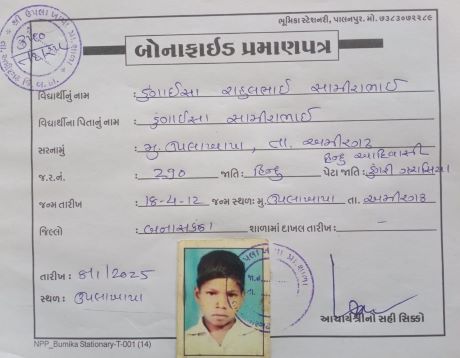 ભૂમિકા સ્ટેશનરી, પાલનપુર. મો. ૭૩૮૩૦૭૨૨૮૯
બોનાફાઈડ પ્રમાણપત્ર
વિદ્યાર્થીનું નામ : ડુંગાઈસા રાહુલભાઈ સામીરાભાઈ
વિદ્યાર્થીના પિતાનું નામ : ડુંગાઈસા સામીરાભાઈ
સરનામું : મુ. ઉપલાખાપા, તા. અમીરગઢ
હિન્દુ આદિવાસી
જ.ર.નં. : 290 જાતિ : હિન્દુ પેટા જાતિ : ડુંગરી ગરાસિયા
જન્મ તારીખ : 18-4-12 જન્મ સ્થળ: મુ. ઉપલાખાપા તા. અમીરગઢ
જિલ્લો : બનાસકાંઠા શાળામાં દાખલ તારીખ : -
તારીખ : /2025
સ્થળ : ઉપલાખાપા
આચાર્યશ્રીનો સહી સિક્કો
NPP_Bumika Stationary-T-001 (14)